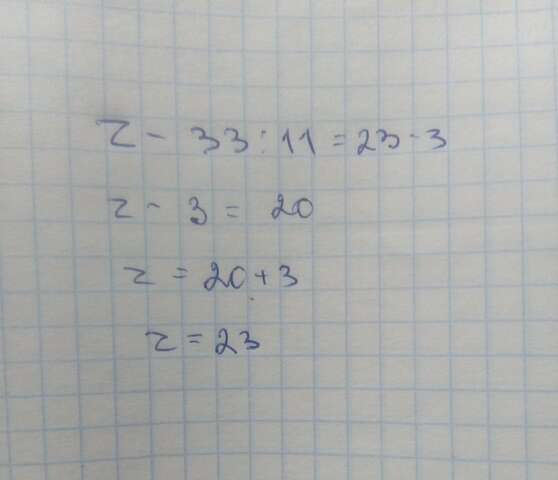 z - 33 : 11 = 23 - 3
z - 3 = 20
z = 20 + 3
z = 23